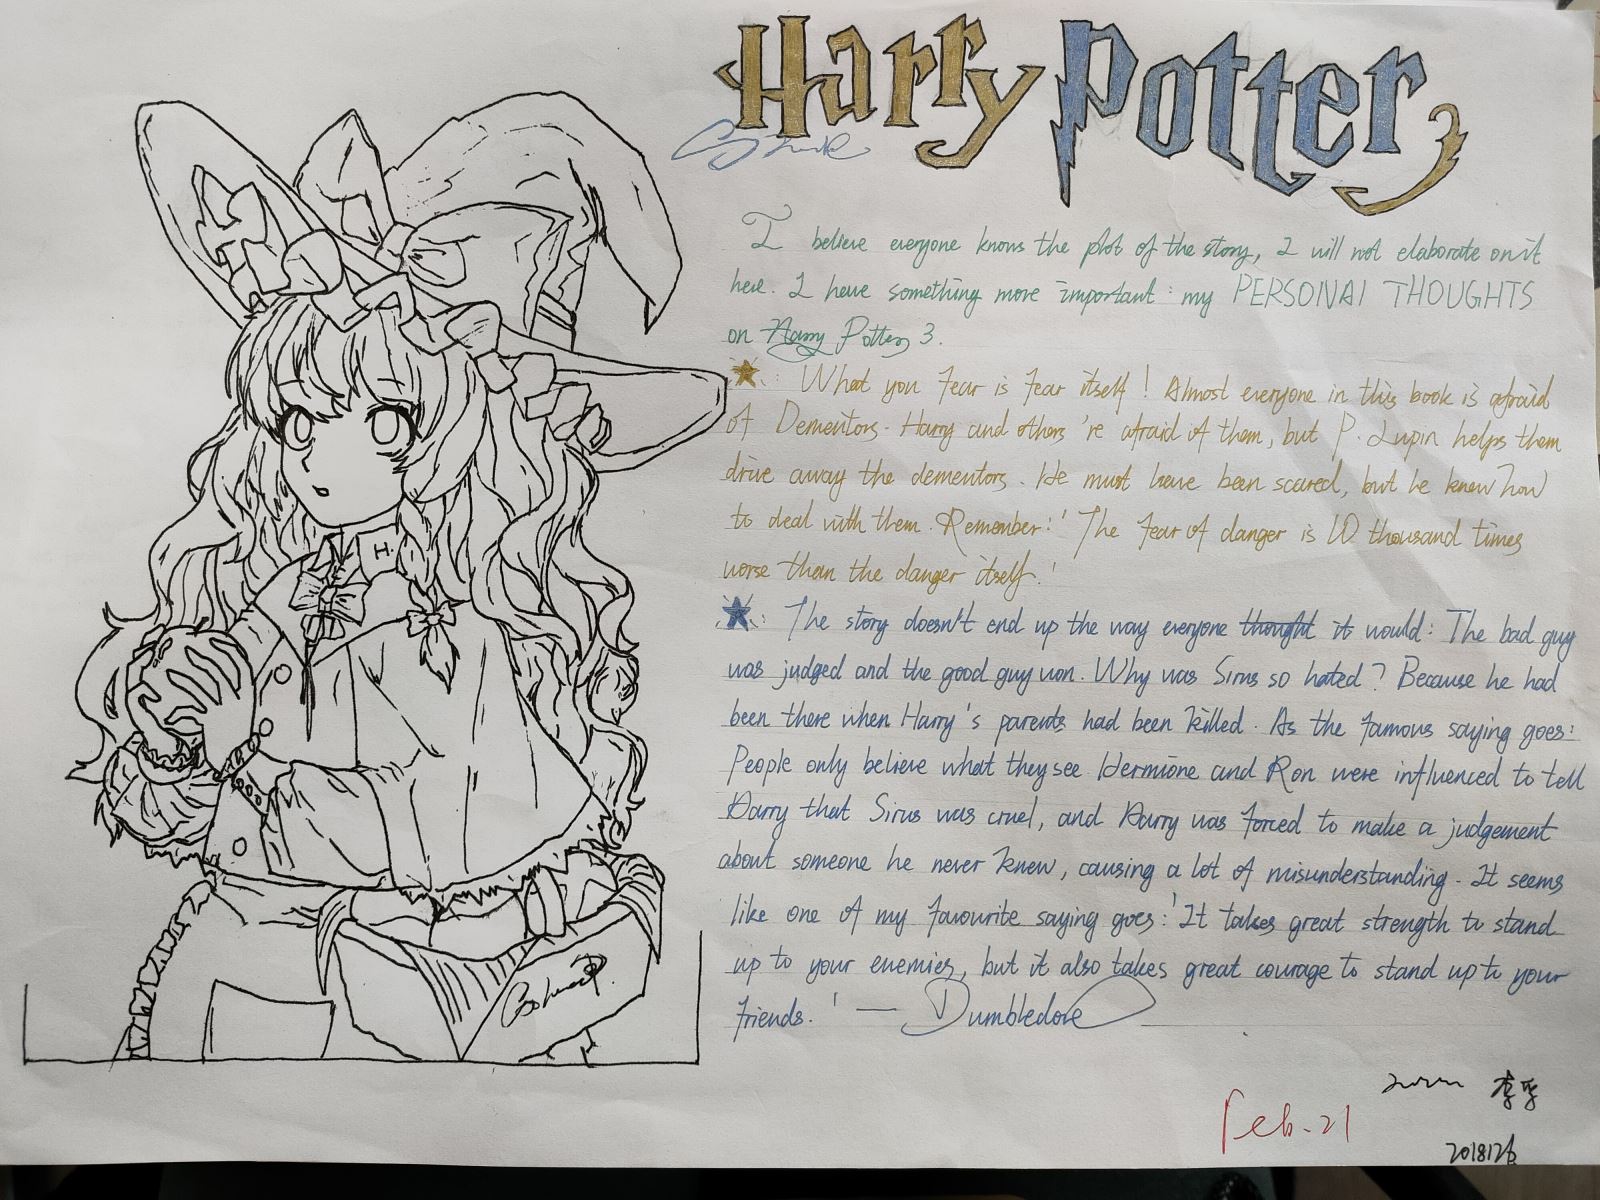 Harry Potter
I believe everyone knows the plot of the story, I will not elaborate on it
here. I have something more important: my PERSONAl THOUGHTS
on Harry Potter 3.
What you fear is fear itself! Almost everyone in this book is afraid
of Dementors. Harry and others 're afraid of them, but P. Lupin helps them
drive away the dementors. He must have been scared, but he knew how
to deal with them. Remember: 'The fear of danger is 10 thousand times
worse than the danger itself.'
The story doesn't end up the way everyone thought it would: The bad guy
was judged and the good guy won. Why was Sirus so hated? Because he had
been there when Harry's parents had been killed. As the famous saying goes:
People only believe what they see. Hermione and Ron were influenced to tell
Harry that Sirus was cruel, and Harry was forced to make a judgement
about someone he never knew, causing a lot of misunderstanding. It seems
like one of my favourite saying goes: 'It takes great strength to stand
up to your enemies, but it also takes great courage to stand up to your
friends.' — Dumbledore
H.
Feb. 21
李孚